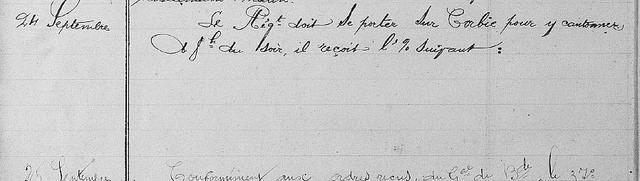 24 Septembre
Le Régt doit se porter sur Corbie pour y cantonner
A 8h du soir, il reçoit l'% suivant :
25 Septembre
Conformément aux ordres reçus, du Gal de Bde, le 37e